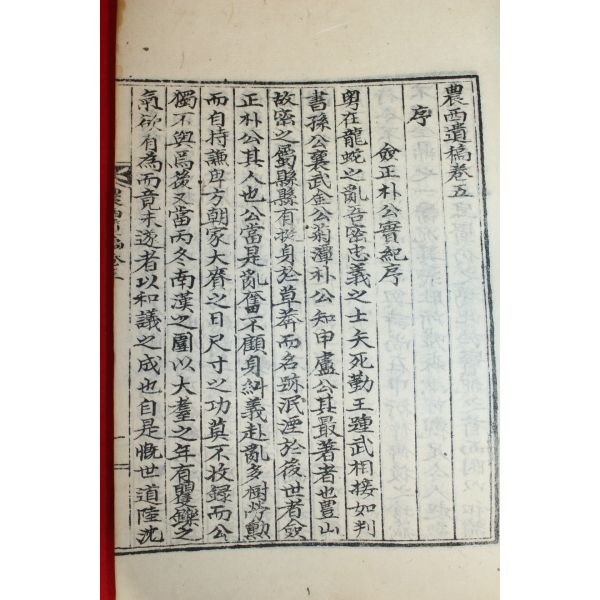 農西遺稿卷五
序
僉正朴公實紀序
粤在龍蛇之亂吾密忠義之士矢死勤王踵武相接如判
書孫公襄武金公菊潭朴公知申盧公其最著者也豊山
故密之屬縣縣有挺身於草莽而名跡泯湮於後世者僉
正朴公其人也公當是亂奮不顧身糾義赴亂多樹勞勳
而自持謙與方朝家大賚之日尺寸之功莫不收錄而公
獨不與焉後又當丙冬南漢之圍以大耋之年有矍鑠之
氣欲有爲而竟未遂者以和議之成也自是慨世道陸沈